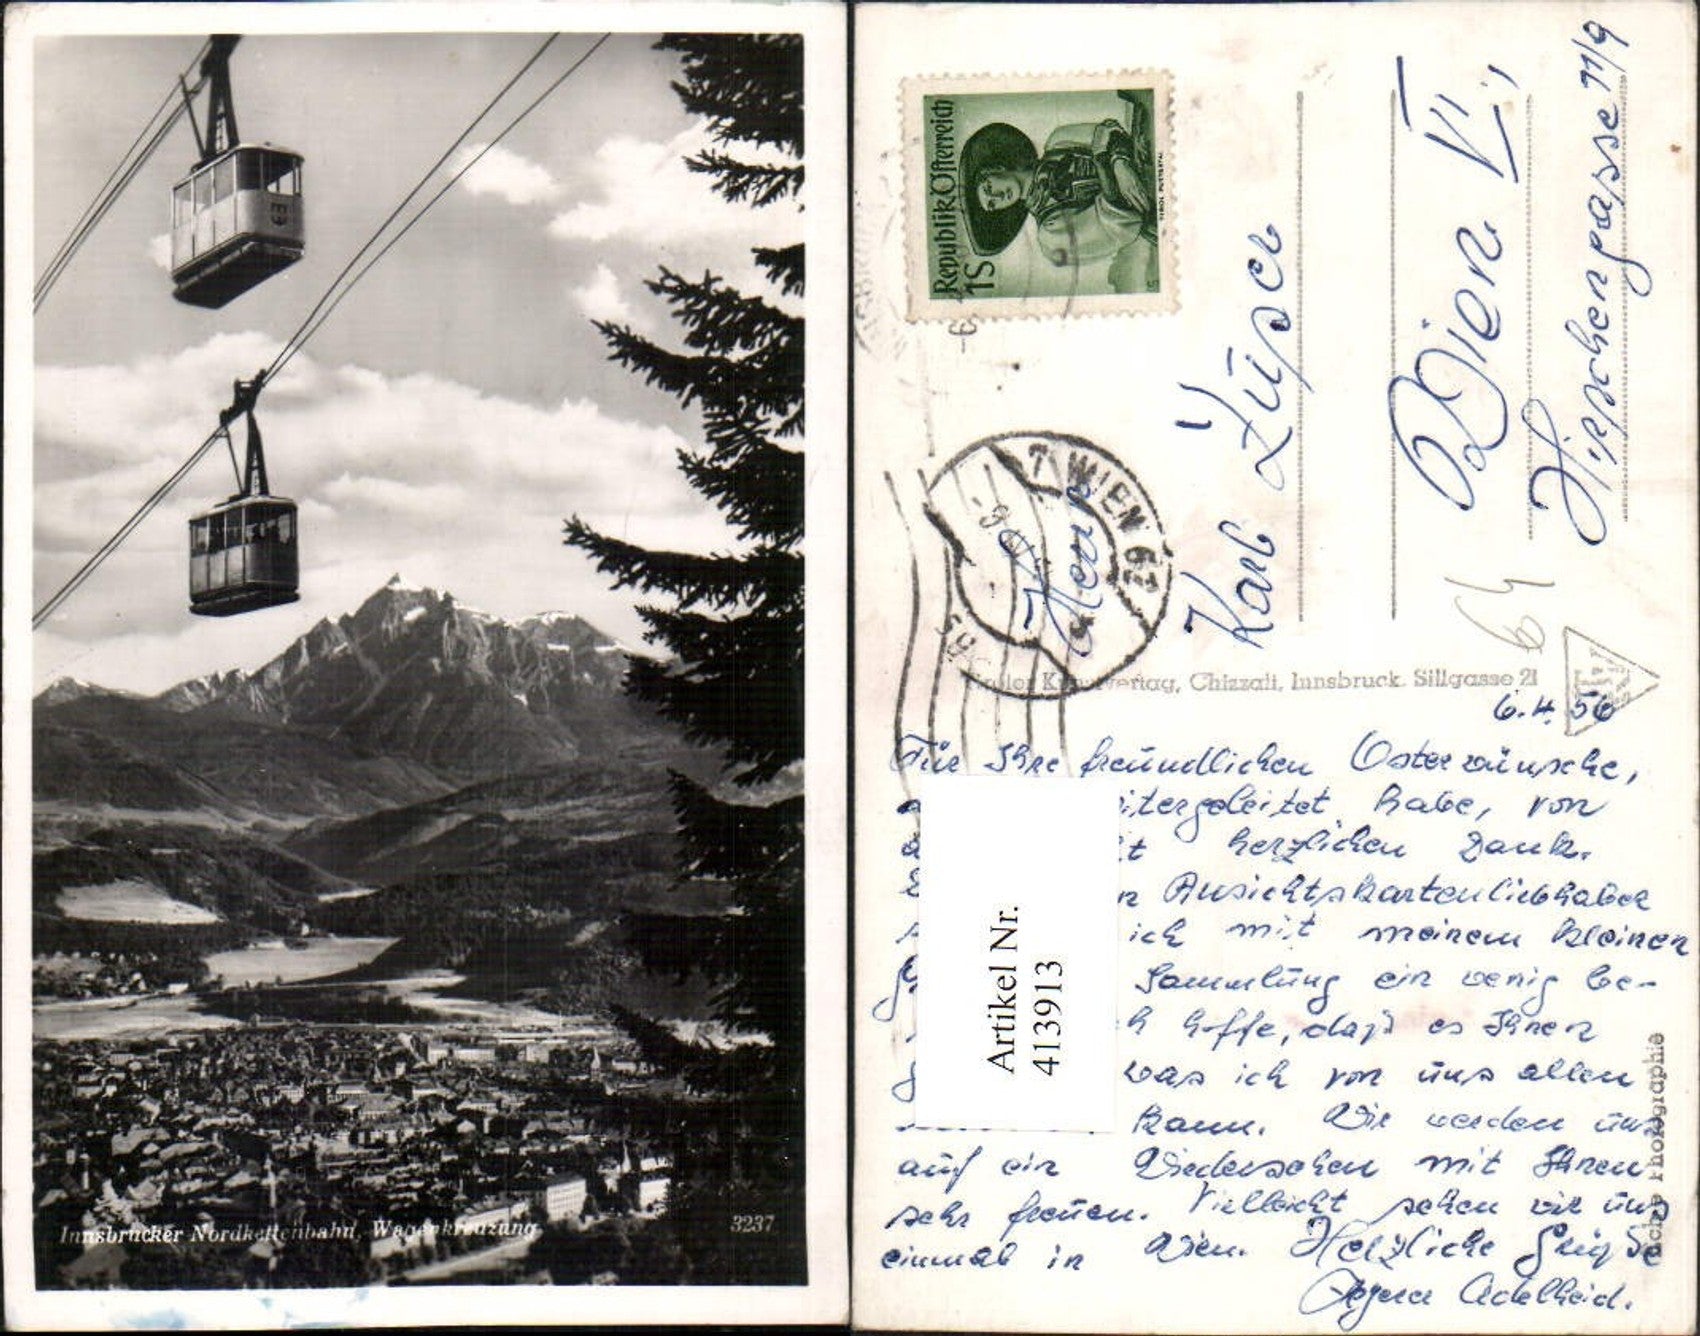 Innsbrucker Nordkettenbahn, Wagenkreuzung
3237
Republik Österreich
1S
TIROL PUSTERTAL
WIEN
Herrn
Karl
Wien VI.,
Hirschengasse 11/9
64
Tiroler Kunstverlag, Chizzali, Innsbruck. Sillgasse 21
6.4.56
Für Ihre freundlichen Osterwünsche,
itergeleitet habe, von
herzlichen Dank.
Ansichtskartenliebhaber
ich mit meinem kleinen
Sammlung ein wenig be-
hoffe, daß es Ihnen
was ich von uns allen
kann. Wir werden uns
auf ein Wiedersehen mit Ihnen
sehr freuen. Vielleicht sehen wir uns
einmal in Wien. Herzliche Grüße
Adelheid.
Photographie
Artikel Nr.
413913